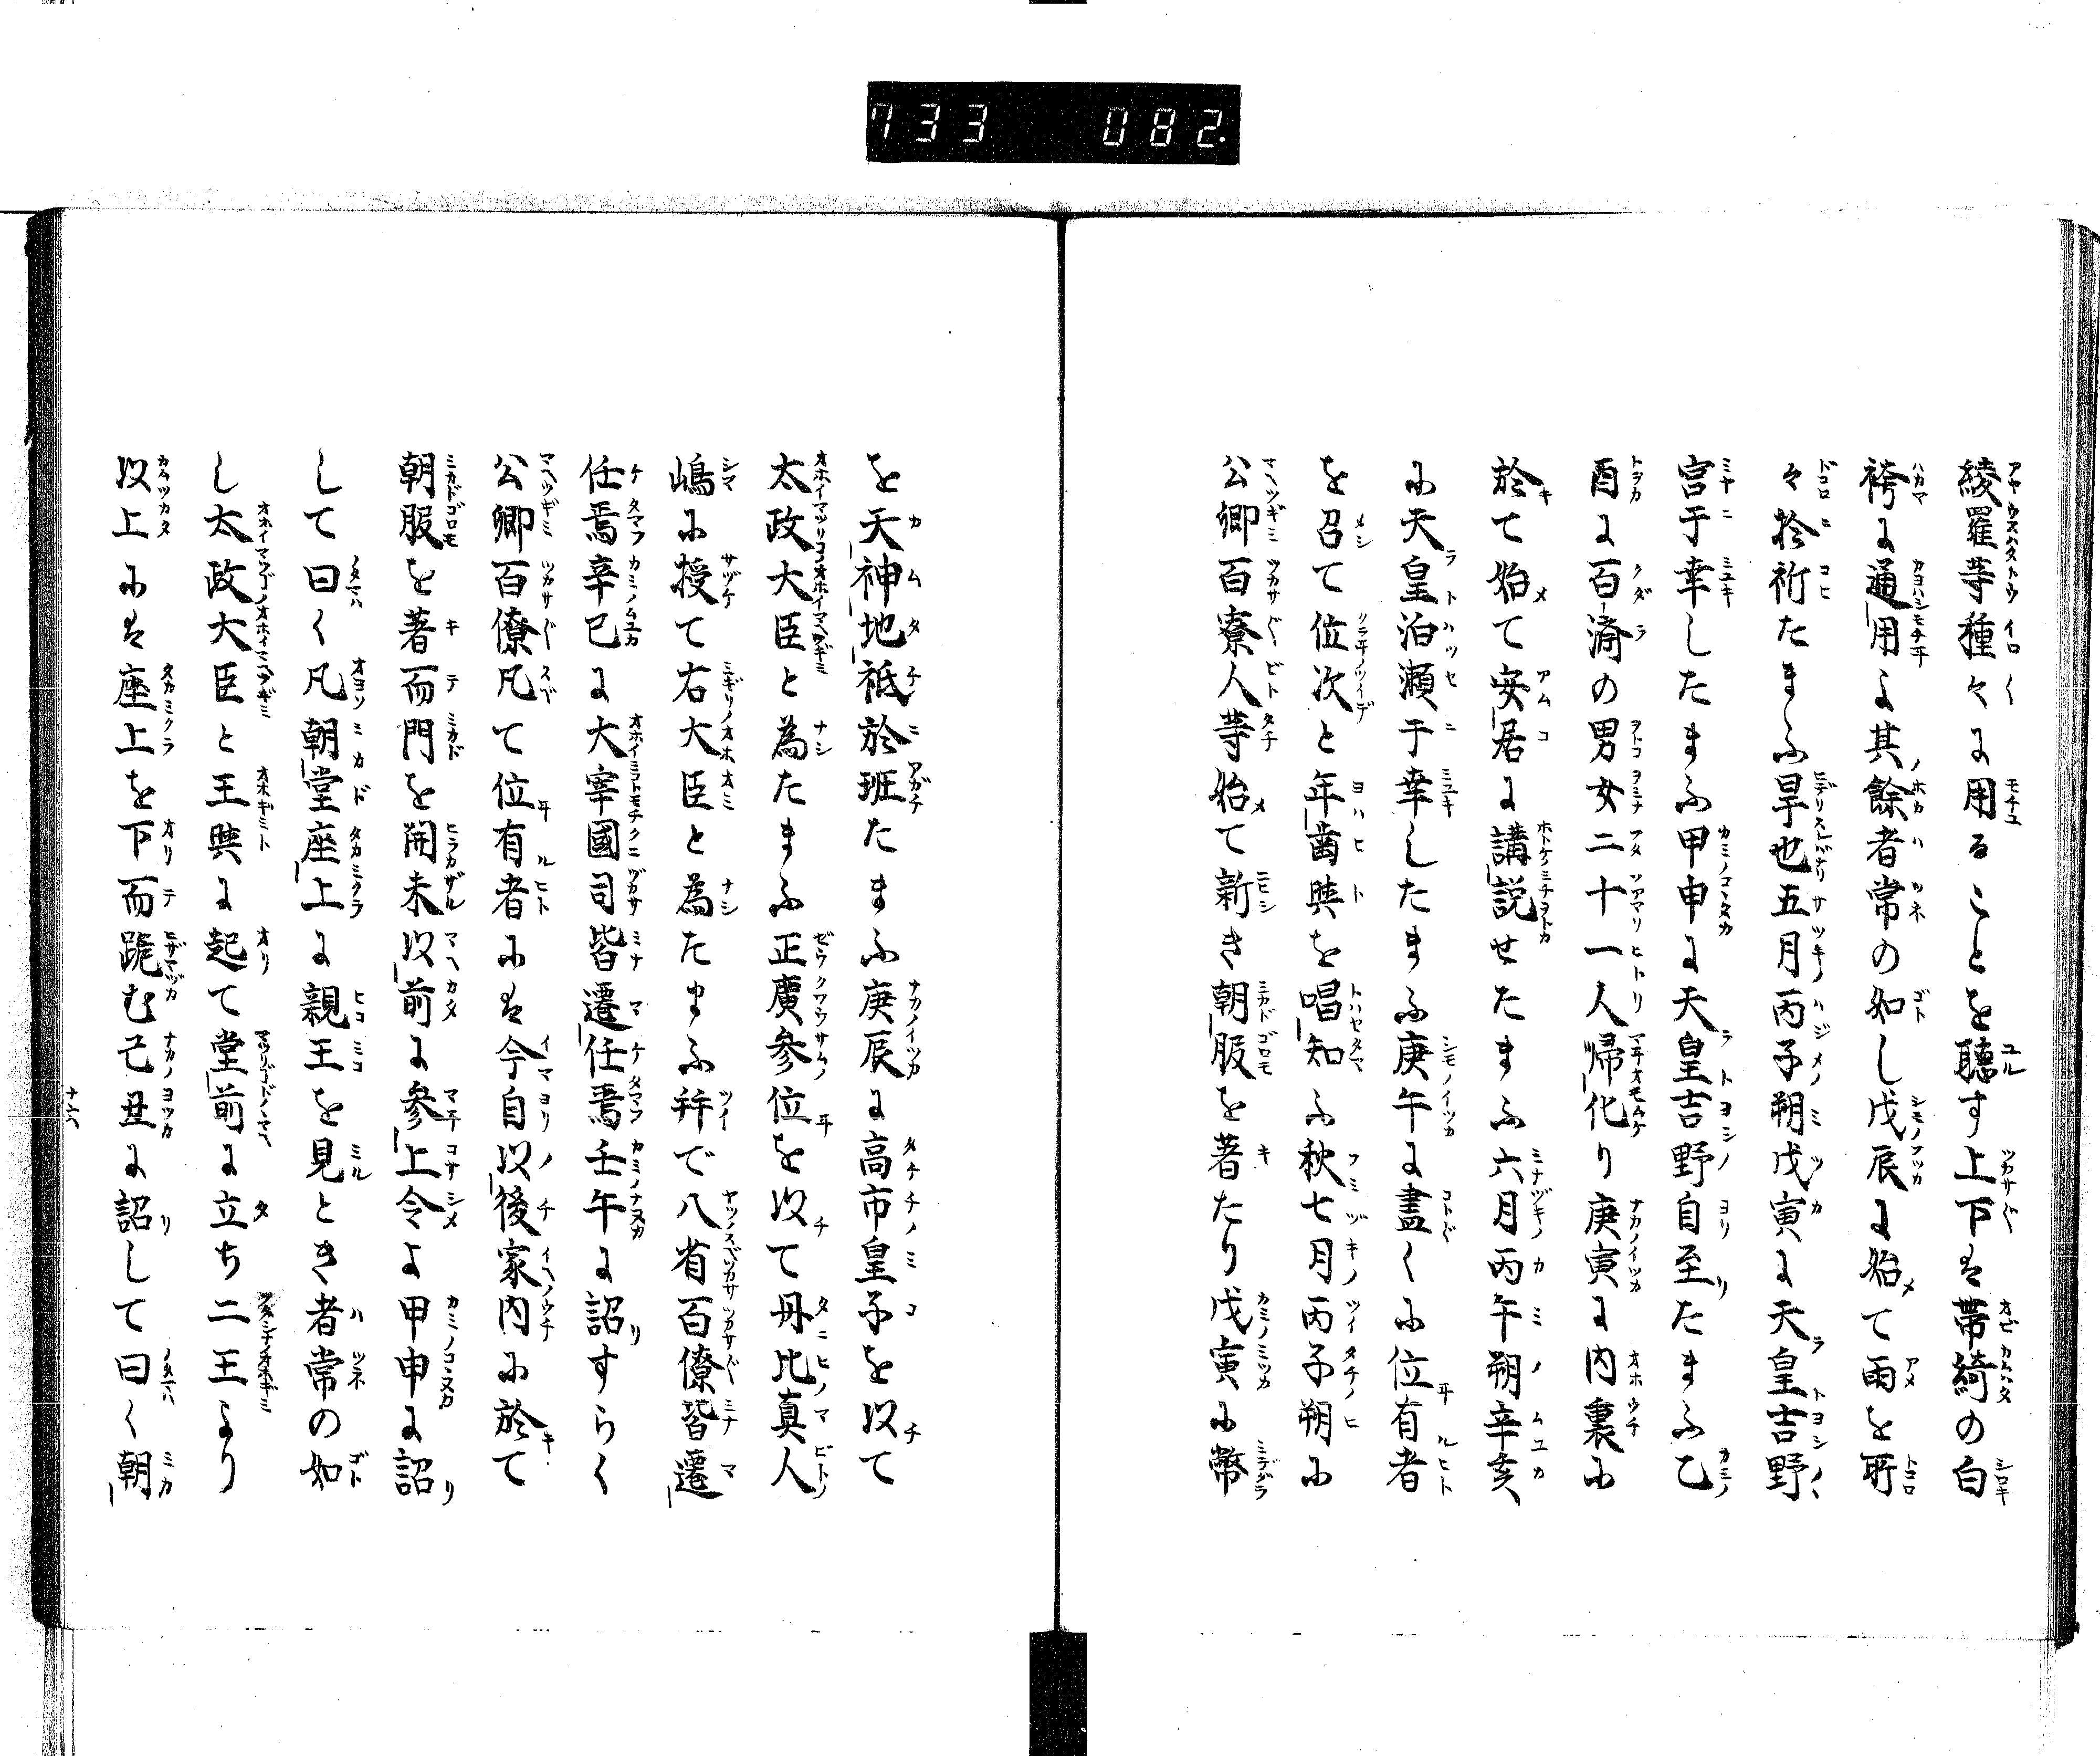 733 082.
綾羅等種々に用ることを聴す上下は帯綺の白
袴に通用よ其餘者常の如し戊辰に始て雨を所
々於祈たまふ旱也五月丙子朔戊寅に天皇吉野
宮于幸したまふ甲申に天皇吉野自至たまふ乙
酉に百済の男女二十一人帰化り庚寅に内裏に
於て始て安居に講説せたまふ六月丙午朔辛亥
に天皇泊瀬于幸したまふ庚午に盡くに位有者
を召て位次と年齒與を唱知ふ秋七月丙子朔に
公卿百寮人等始て新き朝服を著たり戊寅に幣
を天神地祇於班たまふ庚辰に高市皇子を以て
太政大臣と為たまふ正廣参位を以て丹比真人
嶋に授て右大臣と為たまふ并で八省百僚皆遷
任焉辛巳に大宰國司皆遷任焉壬午に詔すらく
公卿百僚凡て位有者には今自以後家内に於て
朝服を著而門を開未以前に参上令よ甲申に詔
して曰く凡朝堂座上に親王を見とき者常の如
し太政大臣と王與に起て堂前に立ち二王より
以上には座上を下而跪む己丑に詔して曰く朝
十六